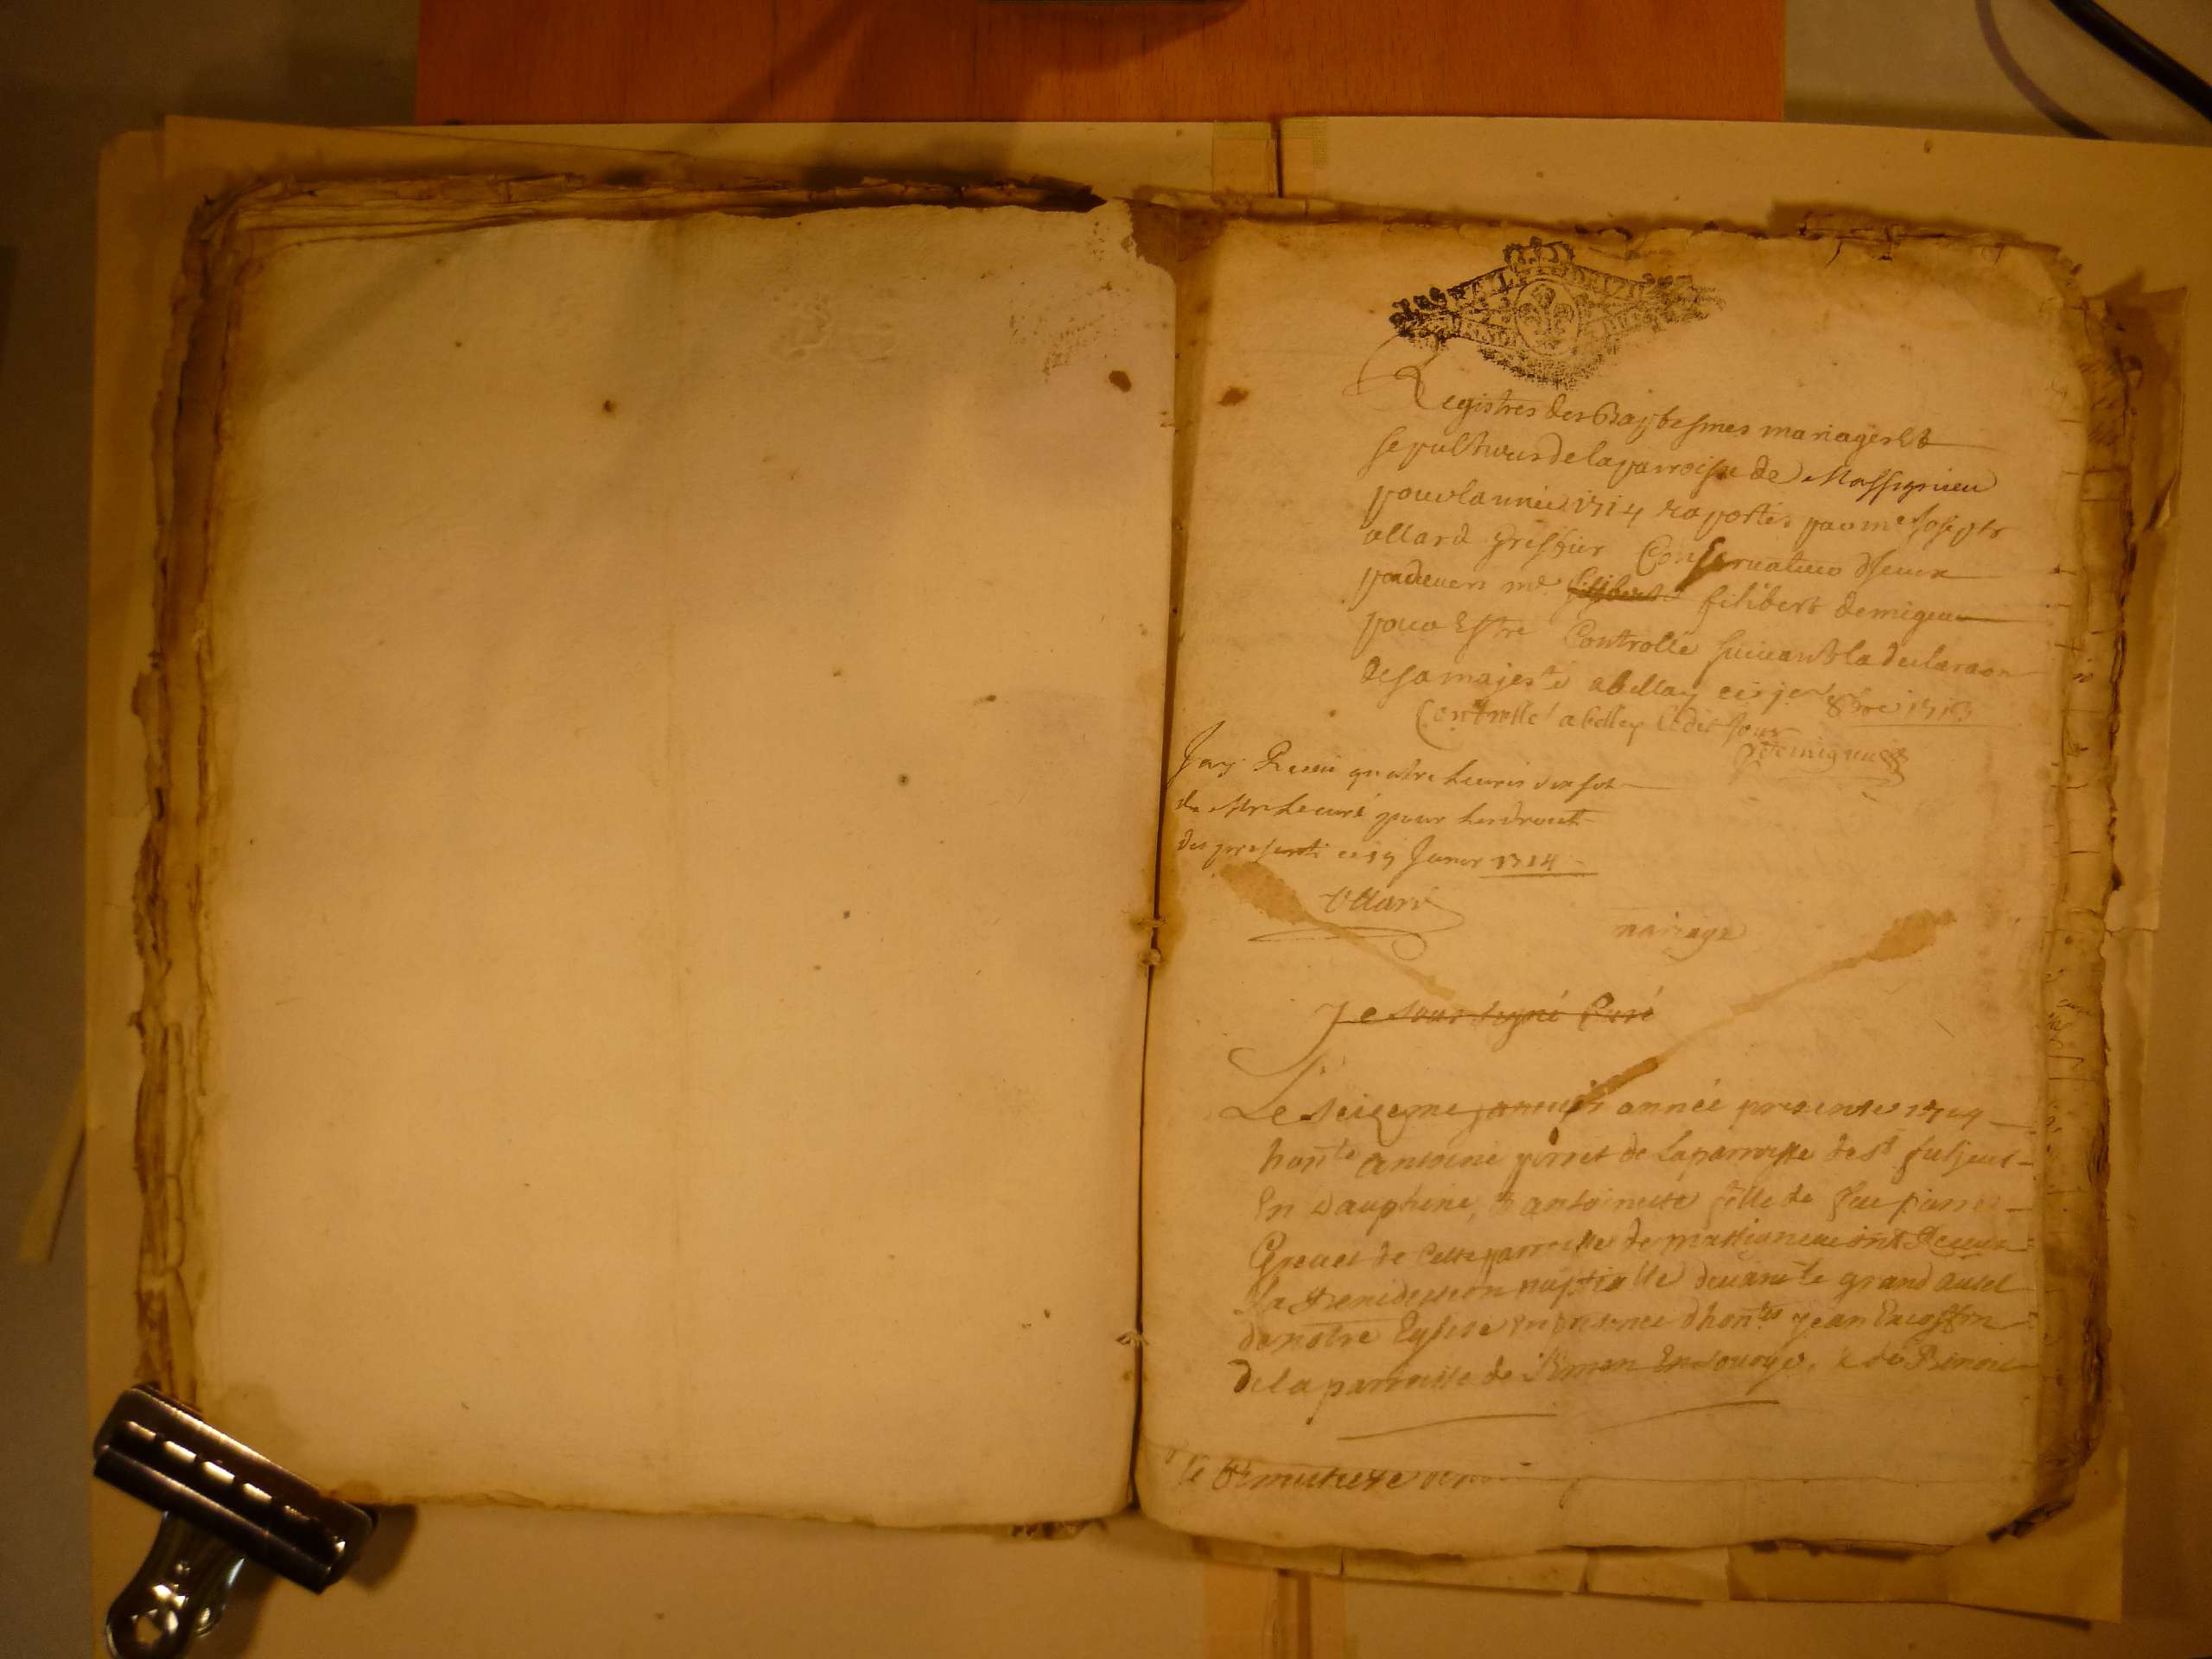 Registres des Baptesmes mariages Et
sepultures de la parroisse de Massignieu
pour lannée 1714 raportés par me Joseph
allard greffier Conservateur d'Iceux
pardevers me filibert demigieu
pour Estre Controlle suivant la declaraon
de sa majesté abellay ce 8bre 1713
Controllé a belley ledit jour
Demigieu
Jay Receu quatre livres dix sols
de Mr le curé pour les droits
des presents ce 15 Janvr 1714
Allard
mariage
Je sous signé Curé
Le seizeme janvier année presente 1714
honte antoine pirret de la parroisse de st
En dauphiné, & antoinette fille de feu pierre
Grevet de Cette parroisse de massignieu ont Receu
la Benediction nuptialle devant le grand autel
de notre Eglise En presence d'hontes jean
De la parroisse de & de Benoit